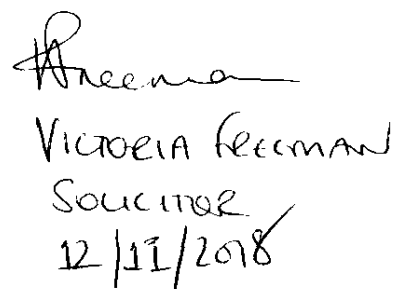 VFreeman
VICTORIA FREEMAN
SOLICITOR
12/11/2018